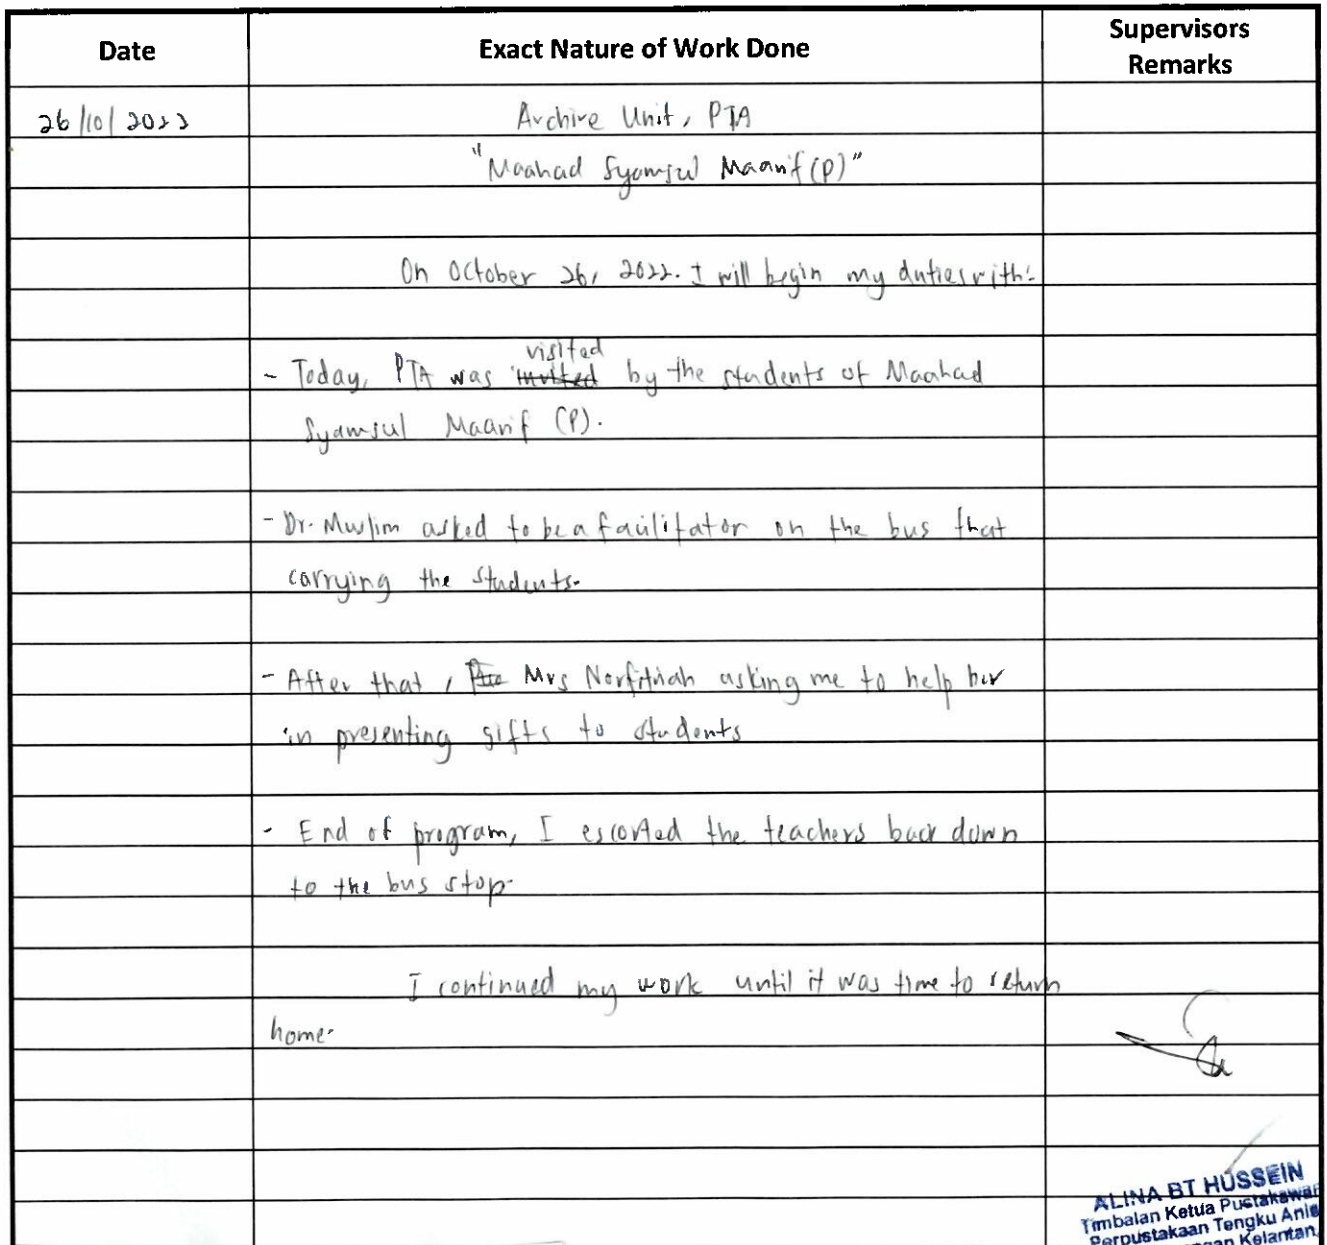 Date
Exact Nature of Work Done
Supervisors
Remarks
26/10/2022
Archive Unit, PTA
"Maahad Syamsul Maarif (P)"
On October 26, 2022. I will begin my duties with:
visited
- Today, PTA was invited by the students of Maahad
Syamsul Maarif (P).
- Dr. Muslim asked to be a facilitator on the bus that
carrying the students.
- After that, Mrs Norfitriah asking me to help her
in presenting gifts to students
- End of program, I escorted the teachers back down
to the bus stop.
I continued my work until it was time to return
home.
ALINA BT HUSSEIN
Timbalan Ketua Pustakawan
Perpustakaan Tengku Anis
Kelantan,